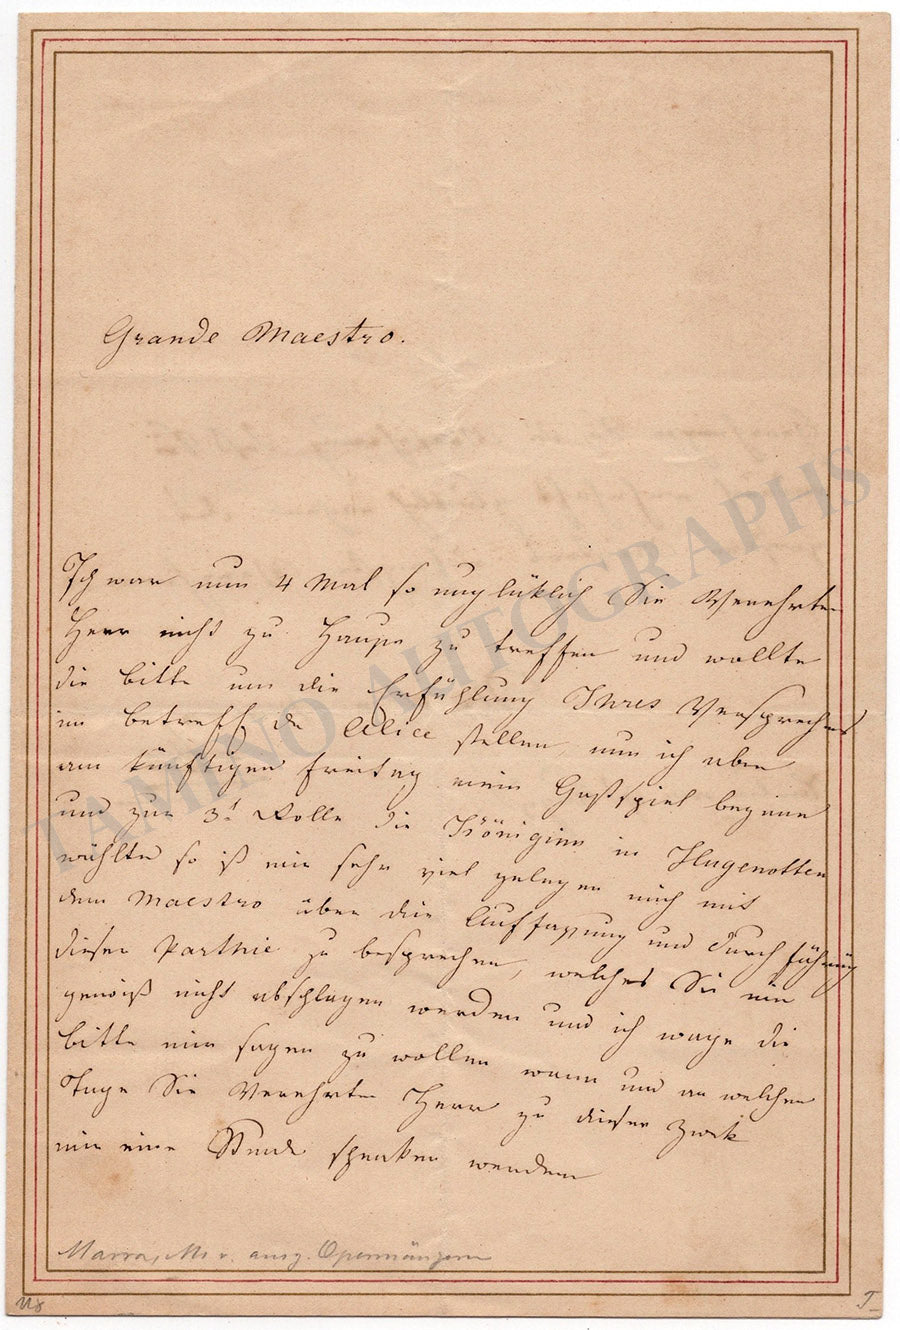 Grande Maestro.
Ich war nun 4 Mal so unglüklich Sie Verehrter
Herr nicht zu Hause zu treffen und wollte
die bitte um die Erfühlung Ihres Versprechens
im betreff der Alice stellen, nun ich aber
am künftigen Freitag mein Gastspiel beginne
und zur 3t Rolle die Königinn in Hugenotten
wählte so ist mir sehr viel gelegen mich mit
dem Maestro über die Auffassung und Durchführung
dieser Parthie zu besprechen, welches Sie mir
gewiß nicht abschlagen werden und ich wage die
bitte mir sagen zu wollen wann und an welchen
Tage Sie Verehrter Herr zu dieser Zwek
mir eine Stunde schenken werden
Marra, M. v. ausg. Opernsängerin
TAMINO AUTOGRAPHS